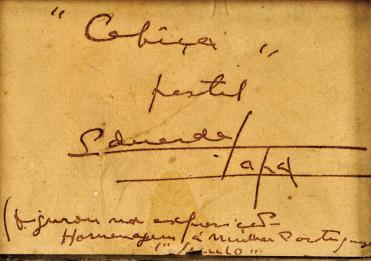 "Cobiça"
pastel
Eduarda
Lapa
(Figurou na exposição
Homenagem á mulher Portuguesa
"Século"